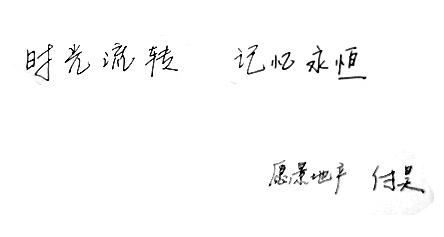 时光流转 记忆永恒
愿景地产 付昊